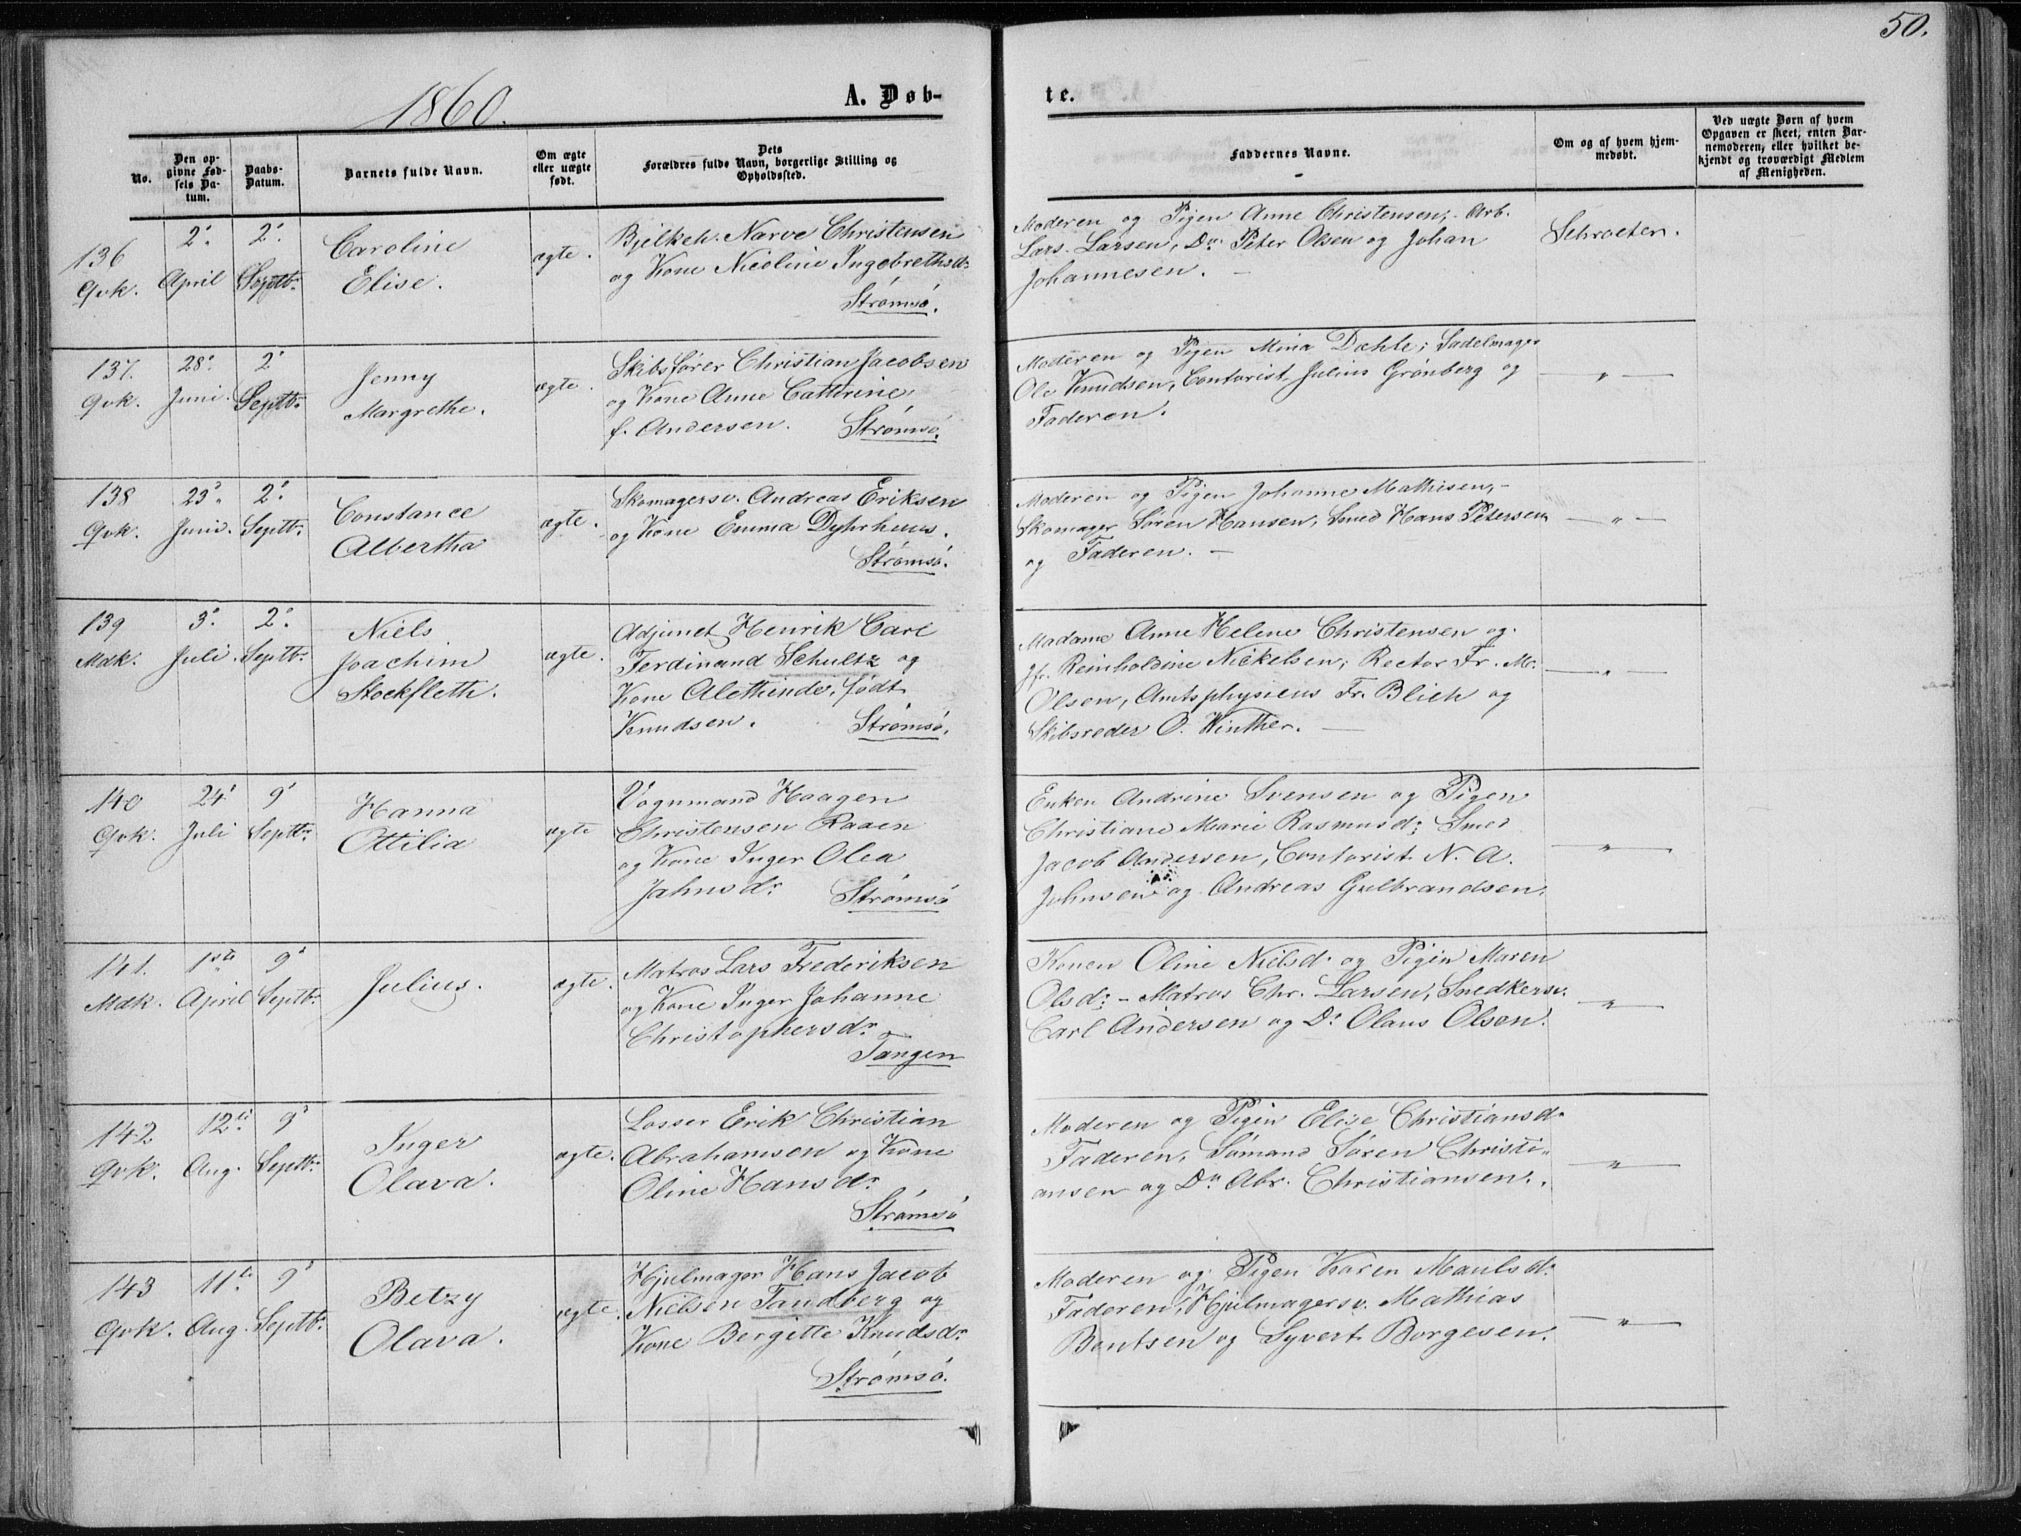 50.
1860.
A. Døb-
te.
No.
Den opgivne Fødsels Datum.
Daabs-Datum.
Barnets fulde Navn.
Om ægte eller uægte født.
Dets Forældres fulde Navn, borgerlige Stilling og Opholdssted.
Faddernes Navne.
Om og af hvem hjemmedøbt.
Ved uægte Børn af hvem Opgaven er skeet, enten Barnemoderen, eller hvilket bekjendt og troværdigt Medlem af Menigheden.
136 Qvk.
2' April
2' Septbr.
Caroline
Elise.
ægte.
Bjelkeh. Narve Christensen
og Kone Nicoline Ingebrethsdr
Strømsø.
Moderen og Pigen Anne Christensen; - Arb.
Lars Larsen, Do Peter Olsen og Johan
Johannesen. -
Schroeter.
137. Qvk.
28' Juni.
2' Septbr.
Jenny
Margrethe.
ægte.
Skibsfører Christian Jacobsen
og Kone Anne Cathrine
f. Andersen. Strømsø.
Moderen og Pigen Mina Dahle; Sadelmager
Ole Knudsen, Contorist Julius Grønberg og
Faderen.
— " —
138 Qvk.
23' Juni.
2' Septbr.
Constance
Albertha
ægte.
Skomagersv. Andreas Eriksen
og Kone Emma Dyhrhuus.
Strømsø.
Moderen og Pigen Johanne Mathisen, -
Skomager Søren Hansen, Smed Hans Petersen
og Faderen. -
— " —
139 Mdk.
3' Juli.
2' Septbr.
Niels
Joachim
Stockfleth.
ægte.
Adjunct Henrik Carl
Ferdinand Schultz og
Kone Alethinde, født
Knudsen. Strømsø.
Madame Anne Helene Christensen og
Jfr. Reinholdine Nickelsen; Rector Fr. M.
Olsen, Amtsphysicus Fr. Blich og
Skibsreder O. Winther. —
— " —
140 Qvk.
24' Juli
9' Septbr.
Hanna
Ottilia
ægte
Vognmand Haagen
Christensen Raaen
og Kone Inger Olea
Jahnsdr Strømsø
Enken Andrine Svensen og Pigen
Christiane Marie Rasmusd; Smed
Jacob Andersen, Contorist N. A.
Johnsen og Andreas Gulbrandsen.
— " —
141. Mdk.
1ste April
9' Septbr.
Julius.
ægte.
Matros Lars Frederiksen
og Kone Inger Johanne
Christophersdr
Tangen
Konen Oline Nielsd. og Pigen Maren
Olsd; - Matros Chr. Larsen, Snedkersv.
Carl Andersen og Do Olaus Olsen.
— " —
142 Qvk.
12te Aug.
9' Septbr.
Inger
Olava.
ægte.
Losser Erik Christian
Abrahamsen og Kone
Oline Hansdr
Strømsø
Moderen og Pigen Elise Christiansd.
Faderen, Sømand Søren Christi-
ansen og Do Abr. Christiansen.
— " —
143 Qvk.
11te Aug.
9' Septbr.
Betzy
Olava.
ægte.
Hjulmager Hans Jacob
Nielsen Tandberg og
Kone Bergitte Knudsdr
Strømsø.
Moderen og Pigen Karen Maulsd.
Faderen, Hjulmagersv. Mathias
Bentsen og Syvert Borgesen.
— " —